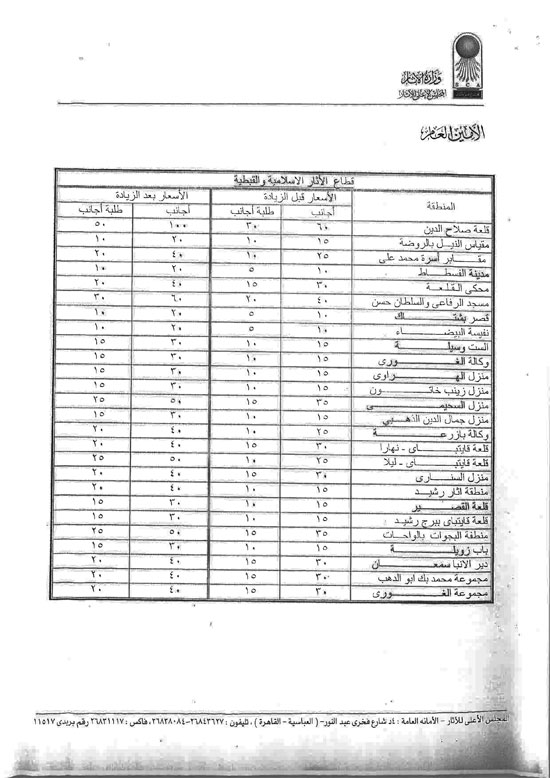 وزارة الآثار
المجلس الأعلى للآثار
S C A
الأمين العام
قطاع الأثار الاسلامية والقبطية
المنطقة الأسعار قبل الزيادة الأسعار بعد الزيادة
أجانب طلبة أجانب أجانب طلبة أجانب
قلعة صلاح الدين ٦٠ ٣٠ ١٠٠ ٥٠
مقياس النيل بالروضة ١٥ ١٠ ٢٠ ١٠
مقابر أسرة محمد على ٢٥ ١٠ ٤٠ ٢٠
مدينة الفسطاط ١٠ ٥ ٢٠ ١٠
محكى القلعة ٣٠ ١٥ ٤٠ ٢٠
مسجد الرفاعى والسلطان حسن ٤٠ ٢٠ ٦٠ ٣٠
قصر بشتاك ١٠ ٥ ٢٠ ١٠
نفيسة البيضاء ١٠ ٥ ٢٠ ١٠
الست وسيلة ١٥ ١٠ ٣٠ ١٥
وكالة الغورى ١٥ ١٠ ٣٠ ١٥
منزل الهراوى ١٥ ١٠ ٣٠ ١٥
منزل زينب خاتون ١٥ ١٠ ٣٠ ١٥
منزل السحيمى ٣٥ ١٥ ٥٠ ٢٥
منزل جمال الدين الذهبي ١٥ ١٠ ٣٠ ١٥
وكالة بازرعة ٢٥ ١٠ ٤٠ ٢٠
قلعة قايتباى - نهارا ٣٠ ١٥ ٤٠ ٢٠
قلعة قايتباى - ليلا ٢٥ ١٠ ٥٠ ٢٠
منزل السنارى ٣٠ ١٥ ٤٠ ٢٠
منطقة اثار رشيد ١٥ ١٠ ٤٠ ٢٠
قلعة القصير ١٥ ١٠ ٣٠ ١٥
قلعة قايتباى ببرج رشيد ١٥ ١٠ ٣٠ ١٥
منطقة البجوات بالواحات ٣٥ ١٥ ٥٠ ٢٥
باب زويلة ١٥ ١٠ ٣٠ ١٥
دير الانبا سمعان ٣٠ ١٥ ٤٠ ٢٠
مجموعة محمد بك ابو الدهب ٣٠ ١٥ ٤٠ ٢٠
مجموعة الغورى ٣٠ ١٥ ٤٠ ٢٠
المجلس الأعلى للآثار - الأمانه العامة : ٤د شارع فخرى عبد النور- (العباسية - القاهرة) ، تليفون : ٢٦٨٤٣٦٢٧-٢٦٨٣٨٠٨٤، فاكس : ٢٦٨٣١١١٧ رقم بريدى ١١٥١٧